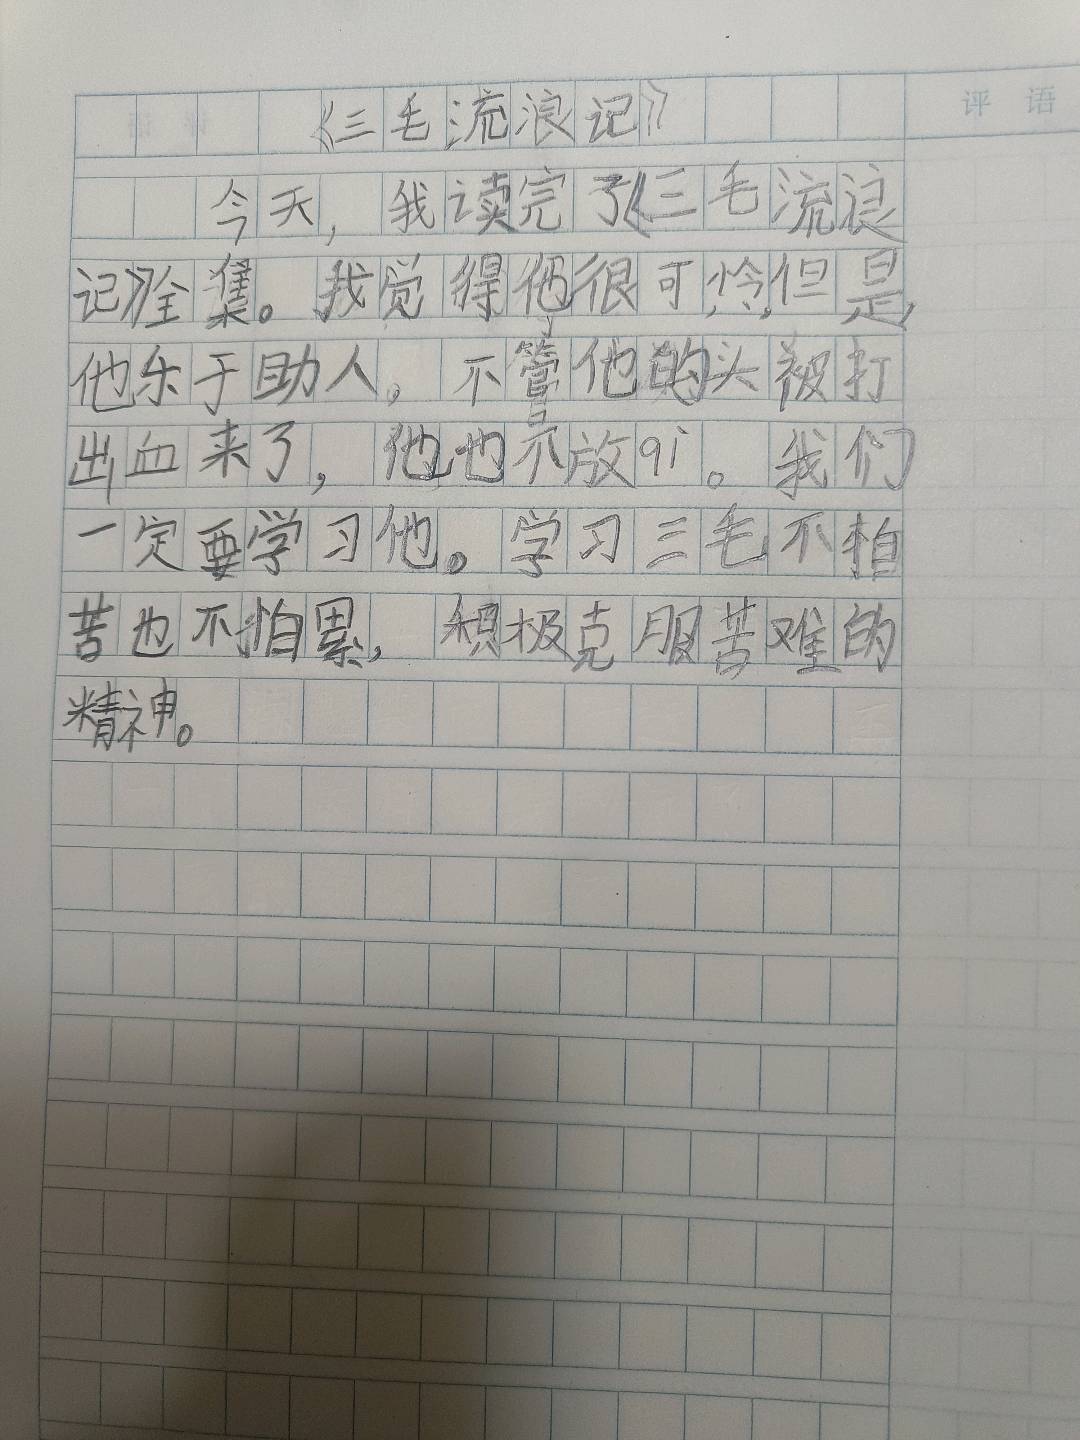 评语
《三毛流浪记》
今天,我读完了《三毛流浪
记》全集。我觉得他很可怜,但是,
他乐于助人。不管他的头被打
出血来了,他也不放qi。我们
一定要学习他。学习三毛不怕
苦也不怕累,积极克服苦难的
精神。